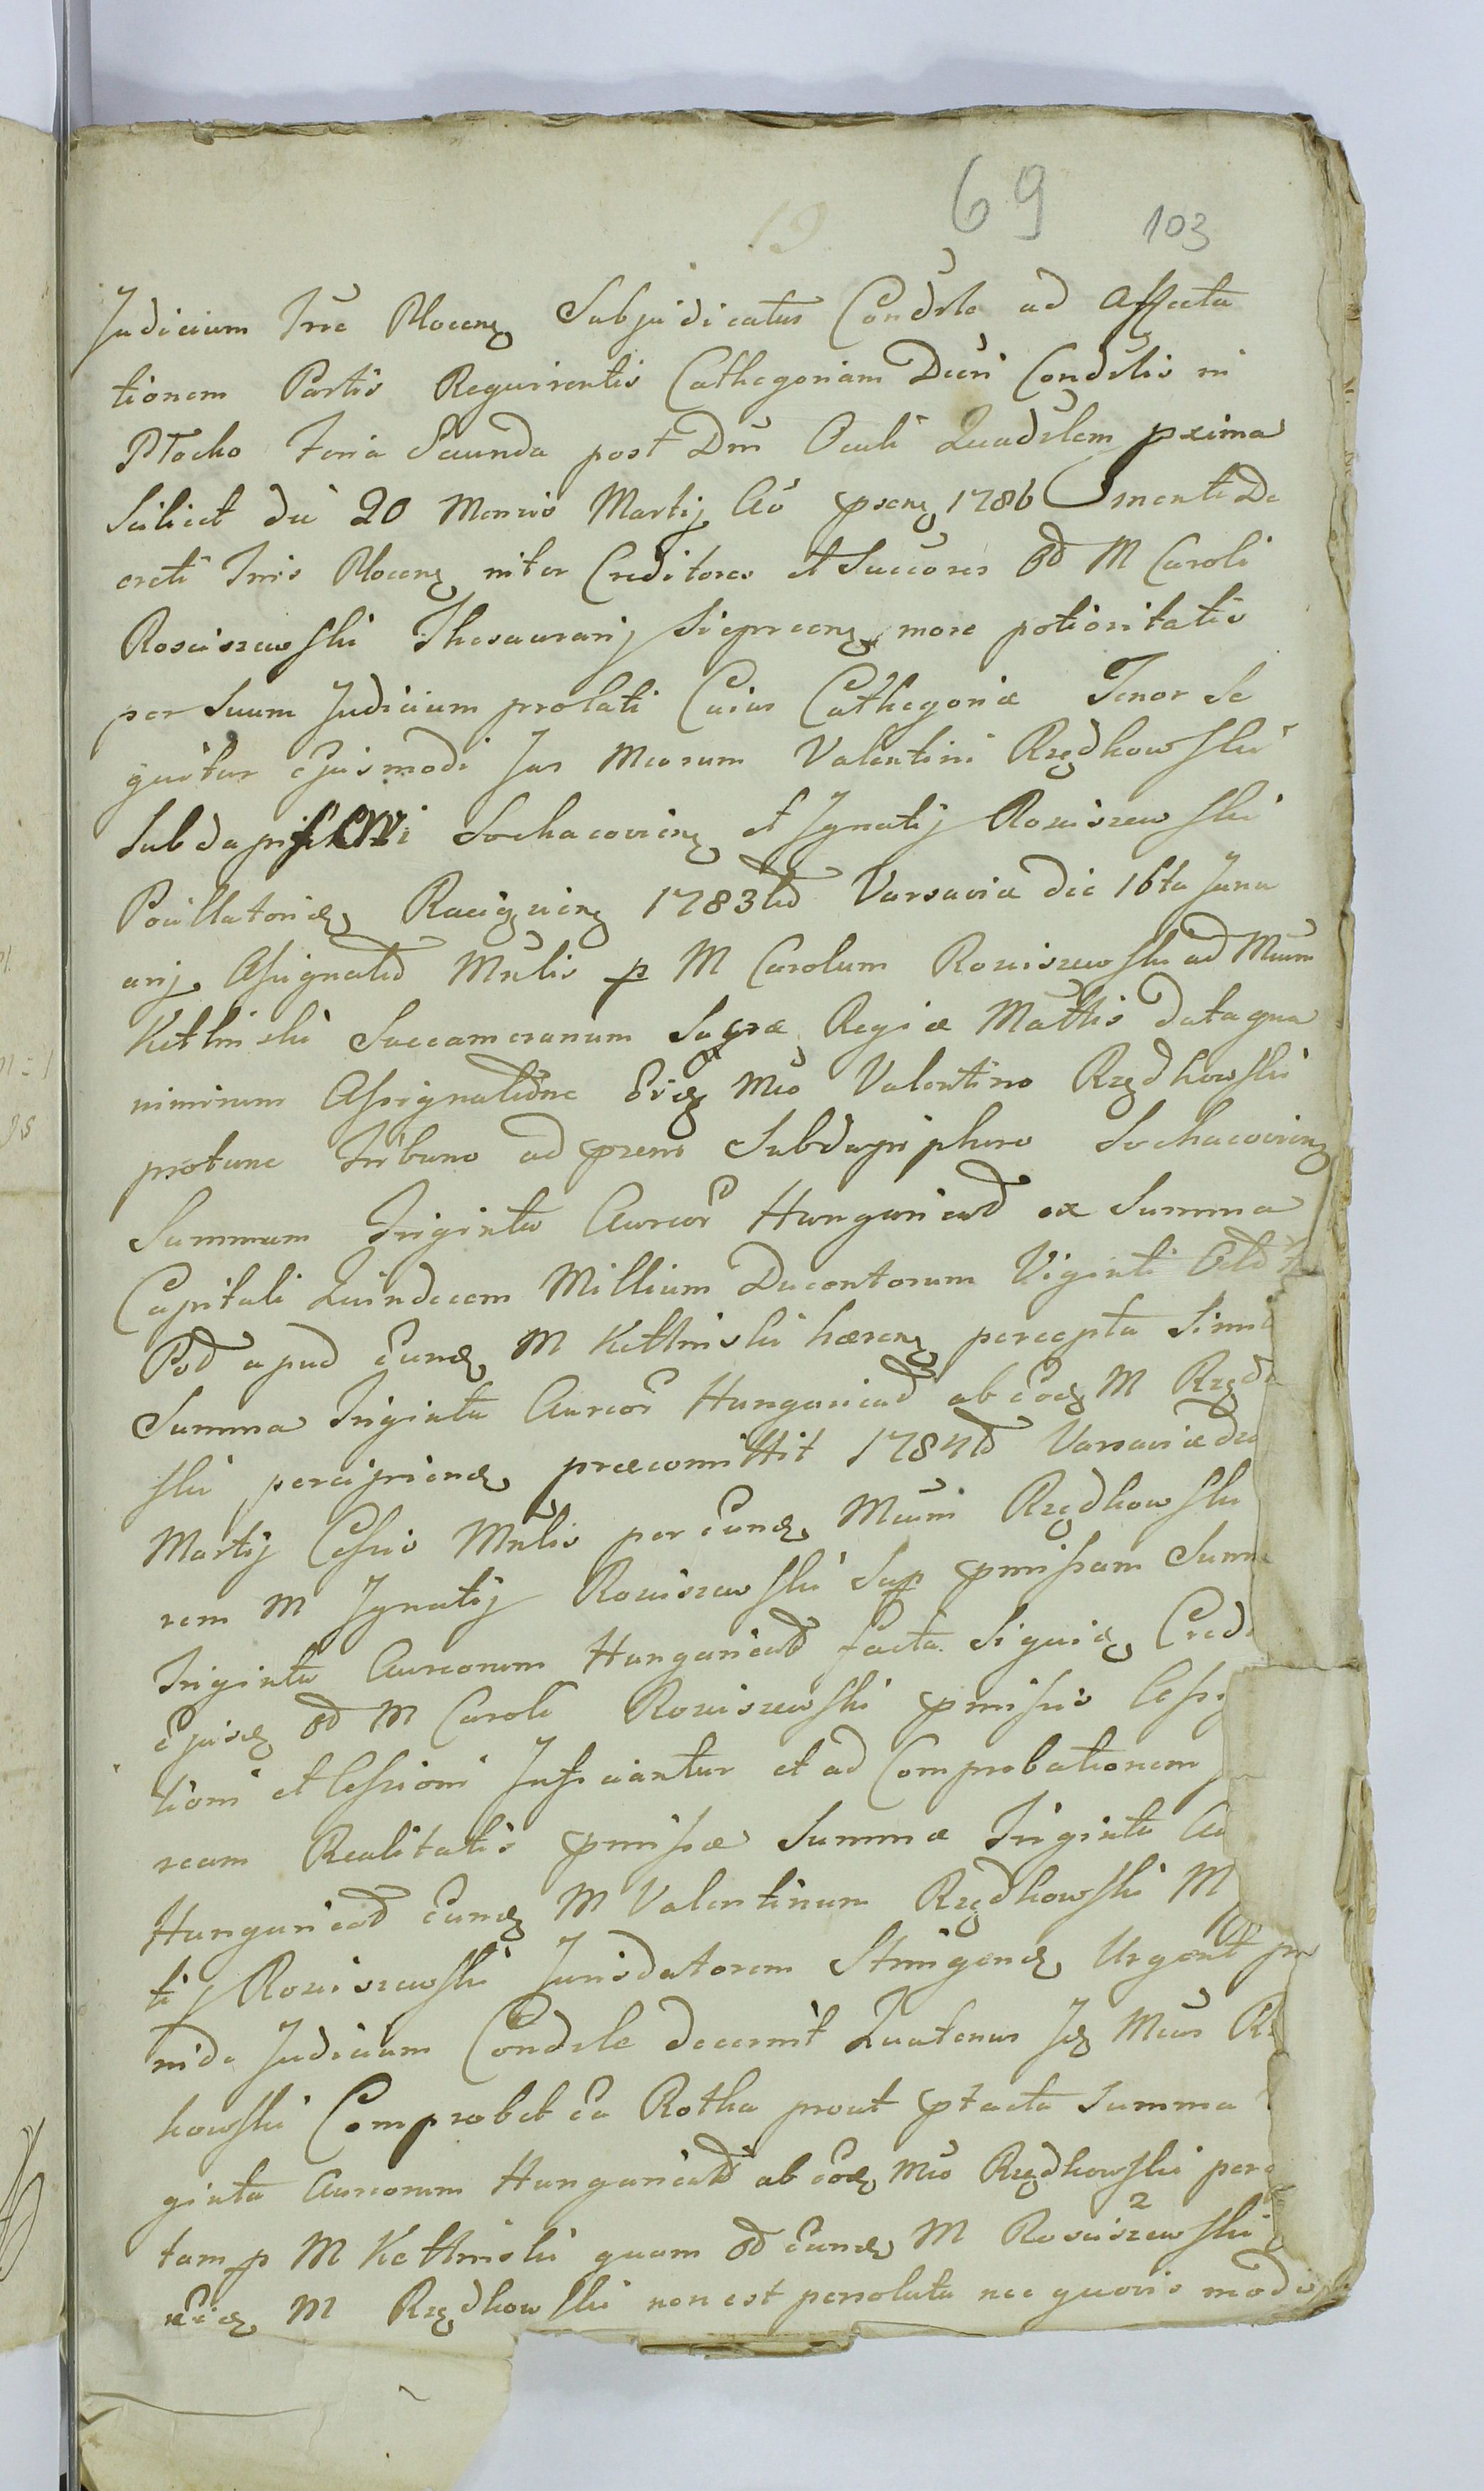 19
69
103
Judicium Trrē Plocenȝ Subjudicatus Condrle ad Affecta
tionem Partis Requirentis Cathegoriam Decri Condrlis in
Płocko Feria Secunda post Dm̄ Oculi Quadrlem pxima
Scilicet die 20 Mensis Martij Aō psenȝ 1786 mente De
creti Trris Plocenȝ inter Creditores et Succores od M Caroli
Rosciszewski Thesaurarij Sieprcenȝ more potioritatis
per Suum Judicium prolati Cuius Cathegoriæ Tenor Se
quitur Ejusmodi Jus Mcorum Valentini Rzędkowski
Subdapiferi Sochacovienȝ et Ignatij Rosciszewski
Pocillatoridȝ Raciązienȝ 1783tio Varsaviæ die 16ta Janu
arij Assignatio Mnlis p M Carolum Rosciszewski ad Mcum
Kethinski Succameranum Sacræ Regiæ Mattis data qua
nimirum Assignatione Eidȝ Mco Valentino Rzędkowski
protunc Tribuno ad præns Subdapiphero Sochacovienȝ
Summam Triginta Aureor Hungaricad ex Summa
Capitali Quindecem Millium Ducentorum Viginti Octo
Pod apud Eundȝ M Kethinski hærenȝ percepta Simi
Summa Triginta Aureor Hungaricad ab Eodȝ M Rzęd
ski percipiendȝ præcomittit 1784to Varsaviæ die
Martij Cessio Mnlis per Eundȝ Mcum Rzędkowski
rem M Ignatij Rosciszewski Sup pmissam Summ
Triginta Aureorum Hungaricad facta Siquidȝ Credi
Ejusdȝ od M Caroli Rosciszewski pmissis Assig
tioni et Cessioni Inficiantur et ad Comprobationem
ream Realitatis pmissæ Summæ Triginta Au
Hungaricad Eundȝ M Valentinum Rzędkowski M
tij Rosciszewski Jurisdatorem Stringendȝ Urgent pro
inde Judicium Condrle decernit Quatenus Idȝ Mcus Rz
kowski Comprobet Ea Rotha prout ptacta Summa
ginta Aureorum Hungaricad ab Eodȝ Mco Rzędkowski perc
tam p M Kethinski quam od Eundȝ M Rosciszewski
2
Eidȝ M Rzędkowski non est persoluta nec quovis modo